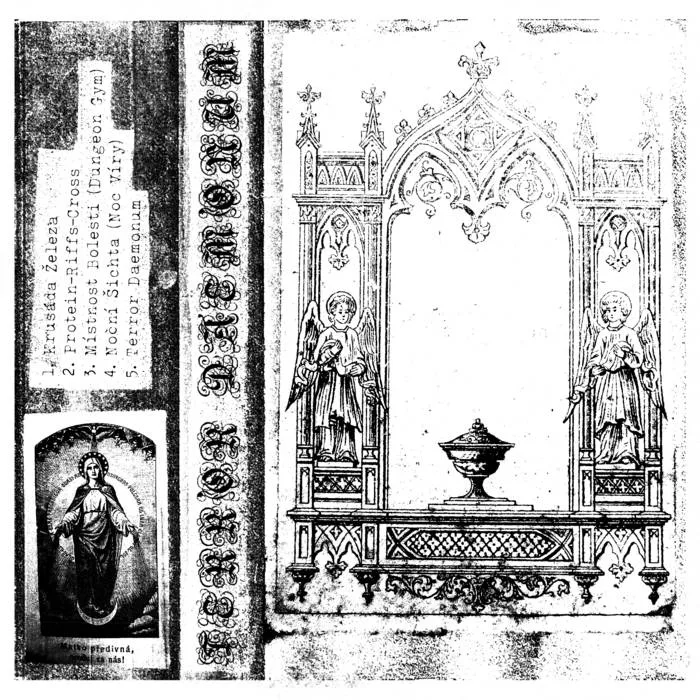 1. Krusáda Železa
2. Protein-Riffs-Cross
3. Místnost Bolesti (Dungeon Gym)
4. Noční Šichta (Noc Víry)
5. Terror Daemonum
Matko předivná,
za nás!
TERROR DAEMONUM